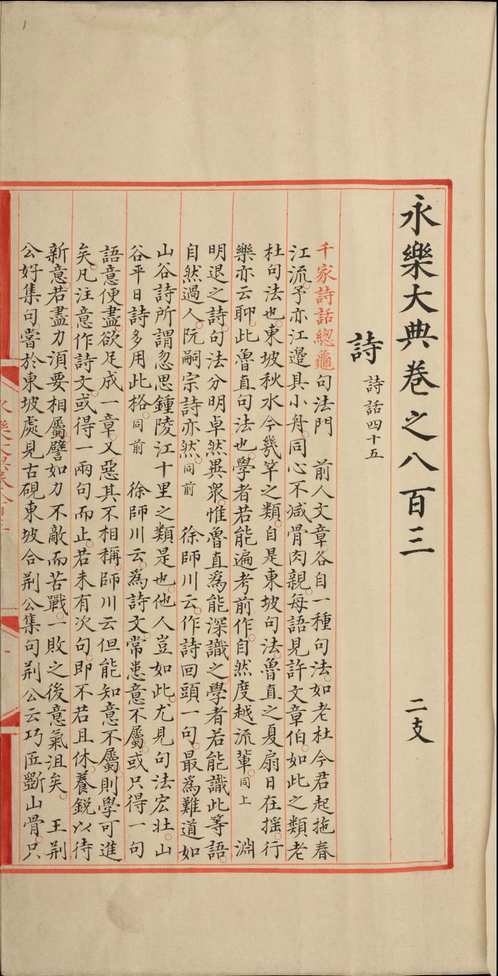 永樂大典卷之八百三　二支
詩　詩話四十五
千家詩話總龜句法門　前人文章各自一種句法如老杜今君起拖春
江流予亦江邊具小舟同心不減骨肉親每語見許文章伯如此之類老
杜句法也東坡秋水今幾竿之類自是東坡句法魯直之夏扇日在搖行
樂亦云聊此魯直句法也學者若能遍考前作自然度越流輩同上　淵
明退之詩句法分明卓然異眾惟魯直為能深識之學者若能識此等語
自然過人阮嗣宗詩亦然同前　徐師川云作詩回頭一句最為難道如
山谷詩所謂忽思鍾陵江十里之類是也他人豈如此尤見句法宏壯山
谷平日詩多用此格同前　徐師川云為詩文常患意不屬或只得一句
語意便盡欲足成一章又惡其不相稱師川云但能知意不屬則學可進
矣凡注意作詩文或得一兩句而止若未有次句即不若且休養銳以待
新意若盡力須要相屬譬如力不敵而苦戰一敗之後意氣沮矣　王荆
公好集句嘗於東坡處見古硯東坡合荆公集句荆公云巧匠斲山骨只